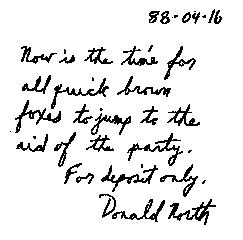 88-04-16
Now is the time for
all quick brown
foxes to jump to the
aid of the party.
For deposit only.
Donald North